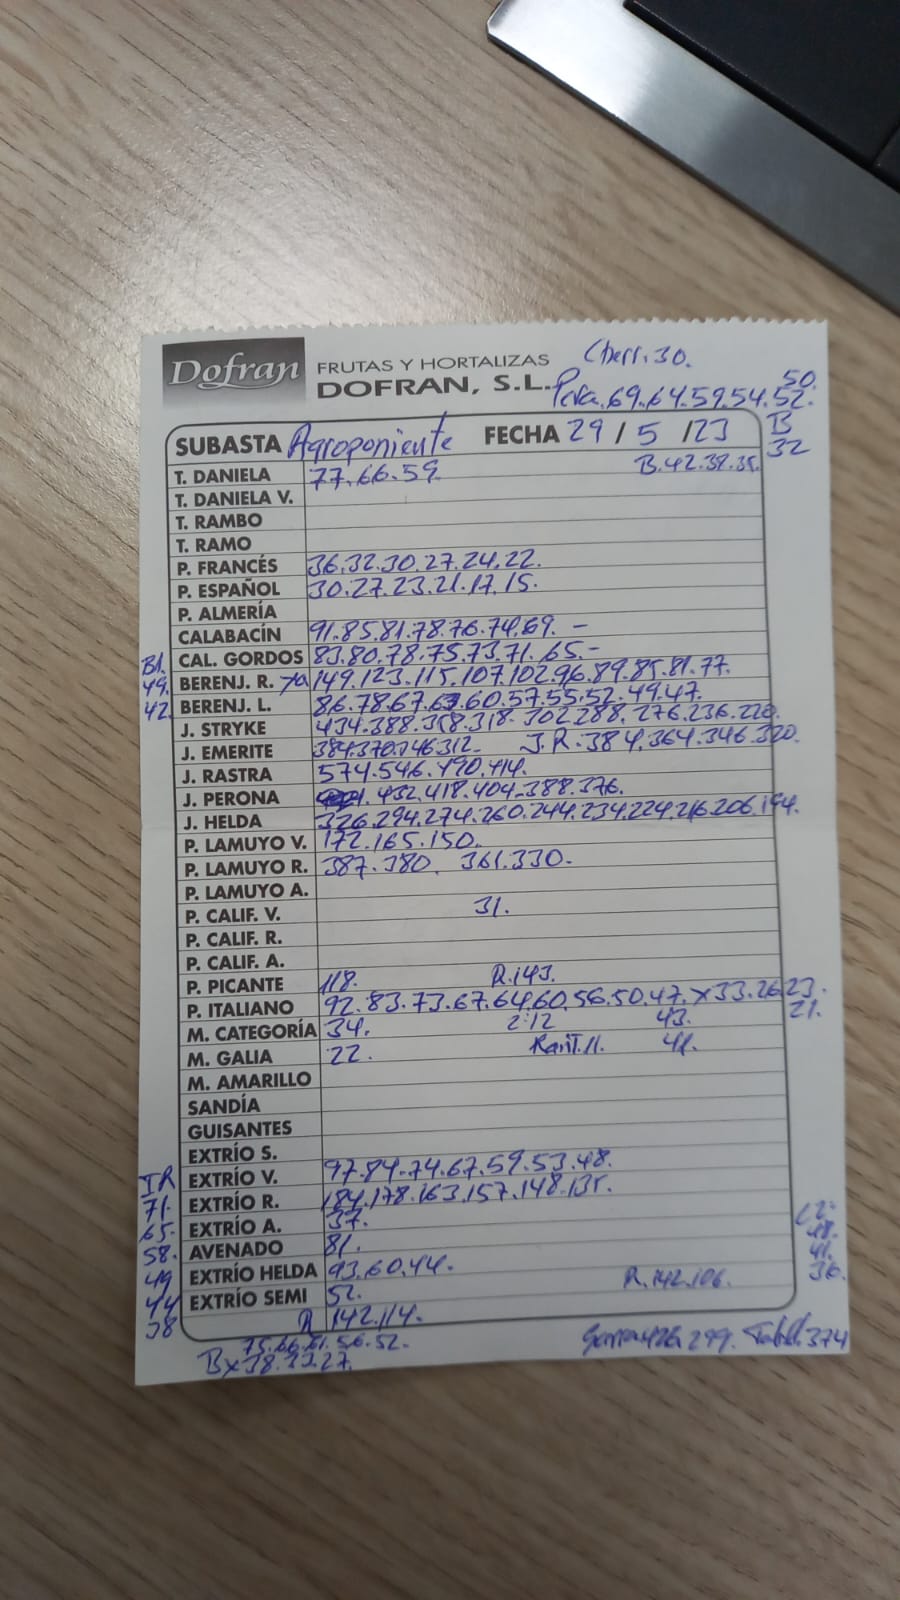 Dofran FRUTAS Y HORTALIZAS Cherr. 30.
DOFRAN, S.L. Pera. 69. 64. 59. 54. 52. 50.
SUBASTA Agroponiente FECHA 29 / 5 / 23 B
32
T. DANIELA 77. 66. 59. B. 42. 38. 35.
T. DANIELA V.
T. RAMBO
T. RAMO
P. FRANCÉS 36. 32. 30. 27. 24. 22.
P. ESPAÑOL 30. 27. 23. 21. 17. 15.
P. ALMERÍA
CALABACÍN 91. 85. 81. 78. 76. 74. 69. -
B1. CAL. GORDOS 83. 80. 78. 75. 73. 71. 65. -
49. BERENJ. R. 149. 123. 115. 107. 102. 96. 89. 85. 81. 77.
42. BERENJ. L. 86. 78. 67. 63. 60. 57. 55. 52. 49. 47.
J. STRYKE 434. 388. 358. 318. 302. 288. 276. 236. 220.
J. EMERITE 384. 370. 346. 312. J.R. 384. 364. 346. 320.
J. RASTRA 574. 546. 490. 414.
J. PERONA 432. 418. 404. 388. 376.
J. HELDA 326. 294. 274. 260. 244. 234. 224. 216. 206. 194.
P. LAMUYO V. 172. 165. 150.
P. LAMUYO R. 387. 380. 361. 330.
P. LAMUYO A.
P. CALIF. V. 31.
P. CALIF. R.
P. CALIF. A.
P. PICANTE 118. R. 143.
P. ITALIANO 92. 83. 73. 67. 64. 60. 56. 50. 47. x 33. 26. 23.
21.
M. CATEGORÍA 34. 2:12 43.
M. GALIA 22. 41.
M. AMARILLO
SANDÍA
GUISANTES
EXTRÍO S.
TR EXTRÍO V. 97. 84. 74. 67. 59. 53. 48.
71. EXTRÍO R. 184. 178. 163. 157. 148. 135.
65. EXTRÍO A. 37.
58. AVENADO 81. 48.
41.
49 EXTRÍO HELDA 93. 60. 44. R. 142. 106. 36.
44 EXTRÍO SEMI 52.
38 R 142. 114.
75. 66. 61. 56. 52. 299. 374
B x 38. 27.